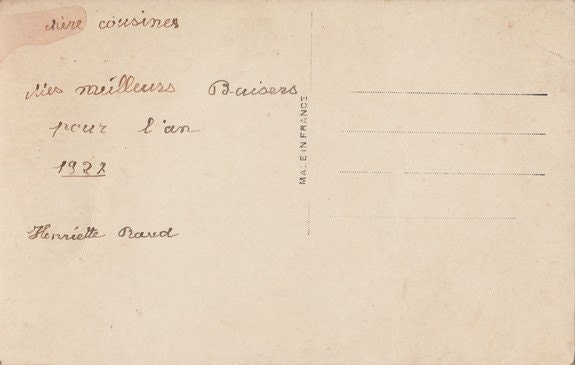 cousines
Mes meilleurs Baisers
pour l'an
1927
Henriette
MADE IN FRANCE